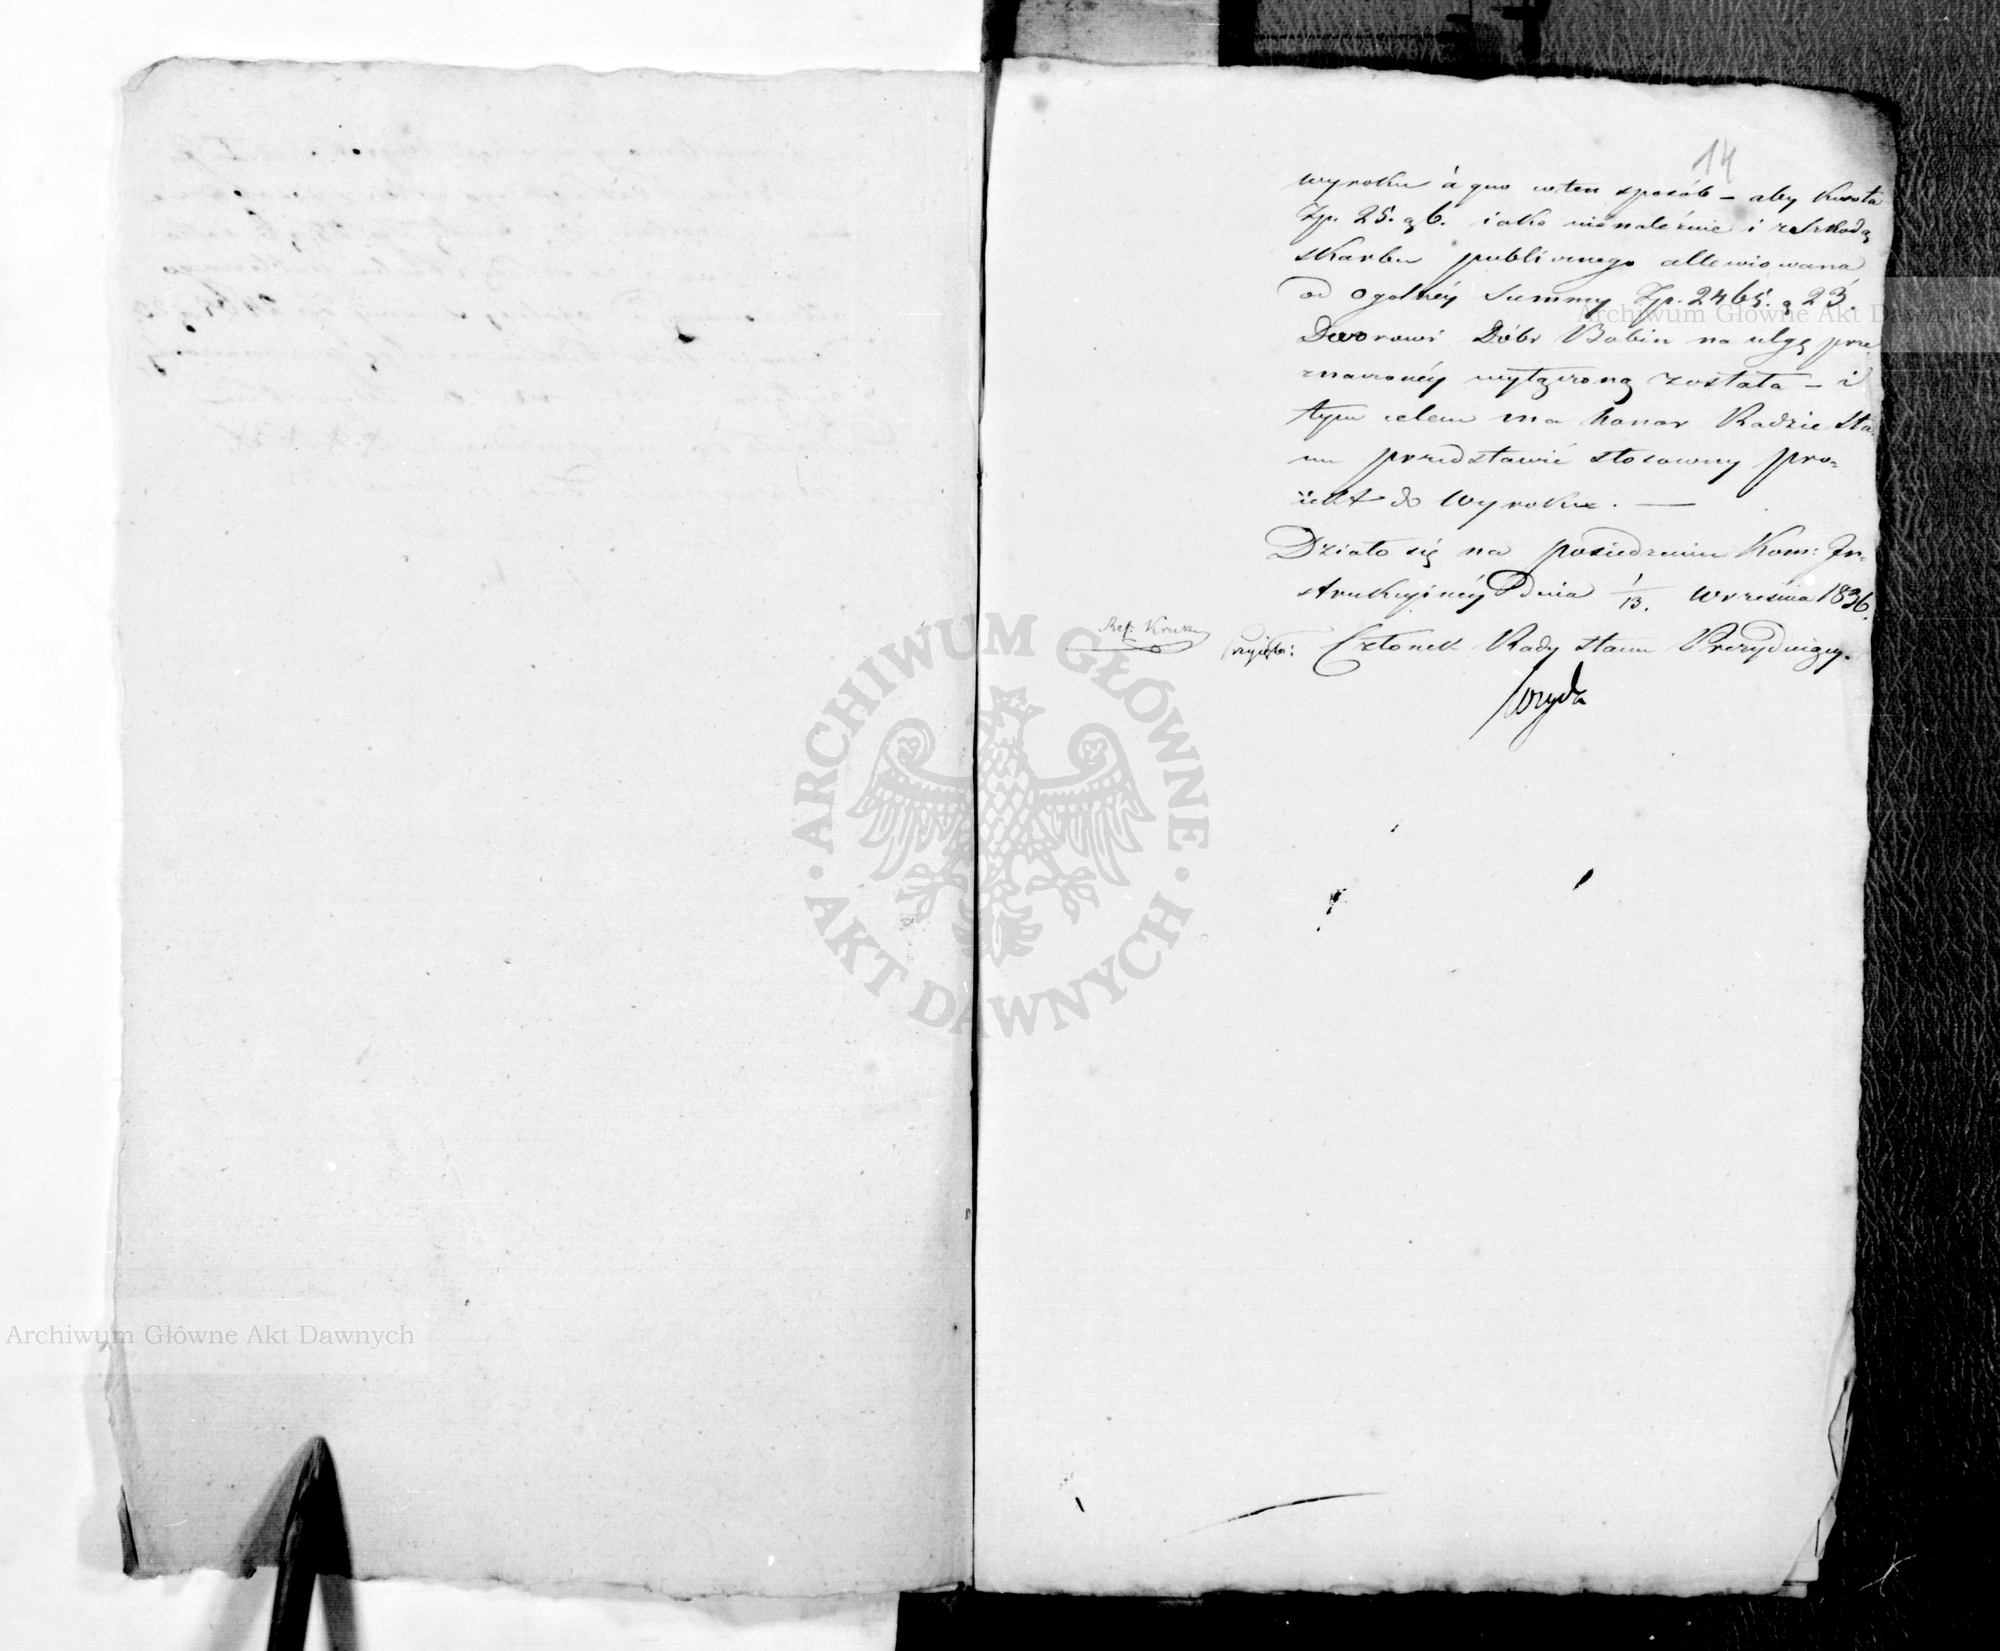 14
wyroku à quo w ten sposób – aby kwota
Zp. 25. g 6. iako nienależnie i z szkodą
skarbu publicznego allewiowana
od ogolnéy Summy Zp. 2465. g 23.
Dworowi Dóbr Bobin na ulgę prze
znaczonéy wyłączoną została – i
tym celem ma honor Radzie Sta-
nu przedstawić stosowny pro-
iekt do Wyroku. —
Działo się na posiedzeniu Kom: In-
strukcyinéy dnia 1/13. Września 1836.
Ref: Członek Rady Stanu Prezyduiący.
ARCHIWUM GŁÓWNE AKT DAWNYCH
Archiwum Główne Akt Dawnych
Archiwum Główne Akt Dawnych